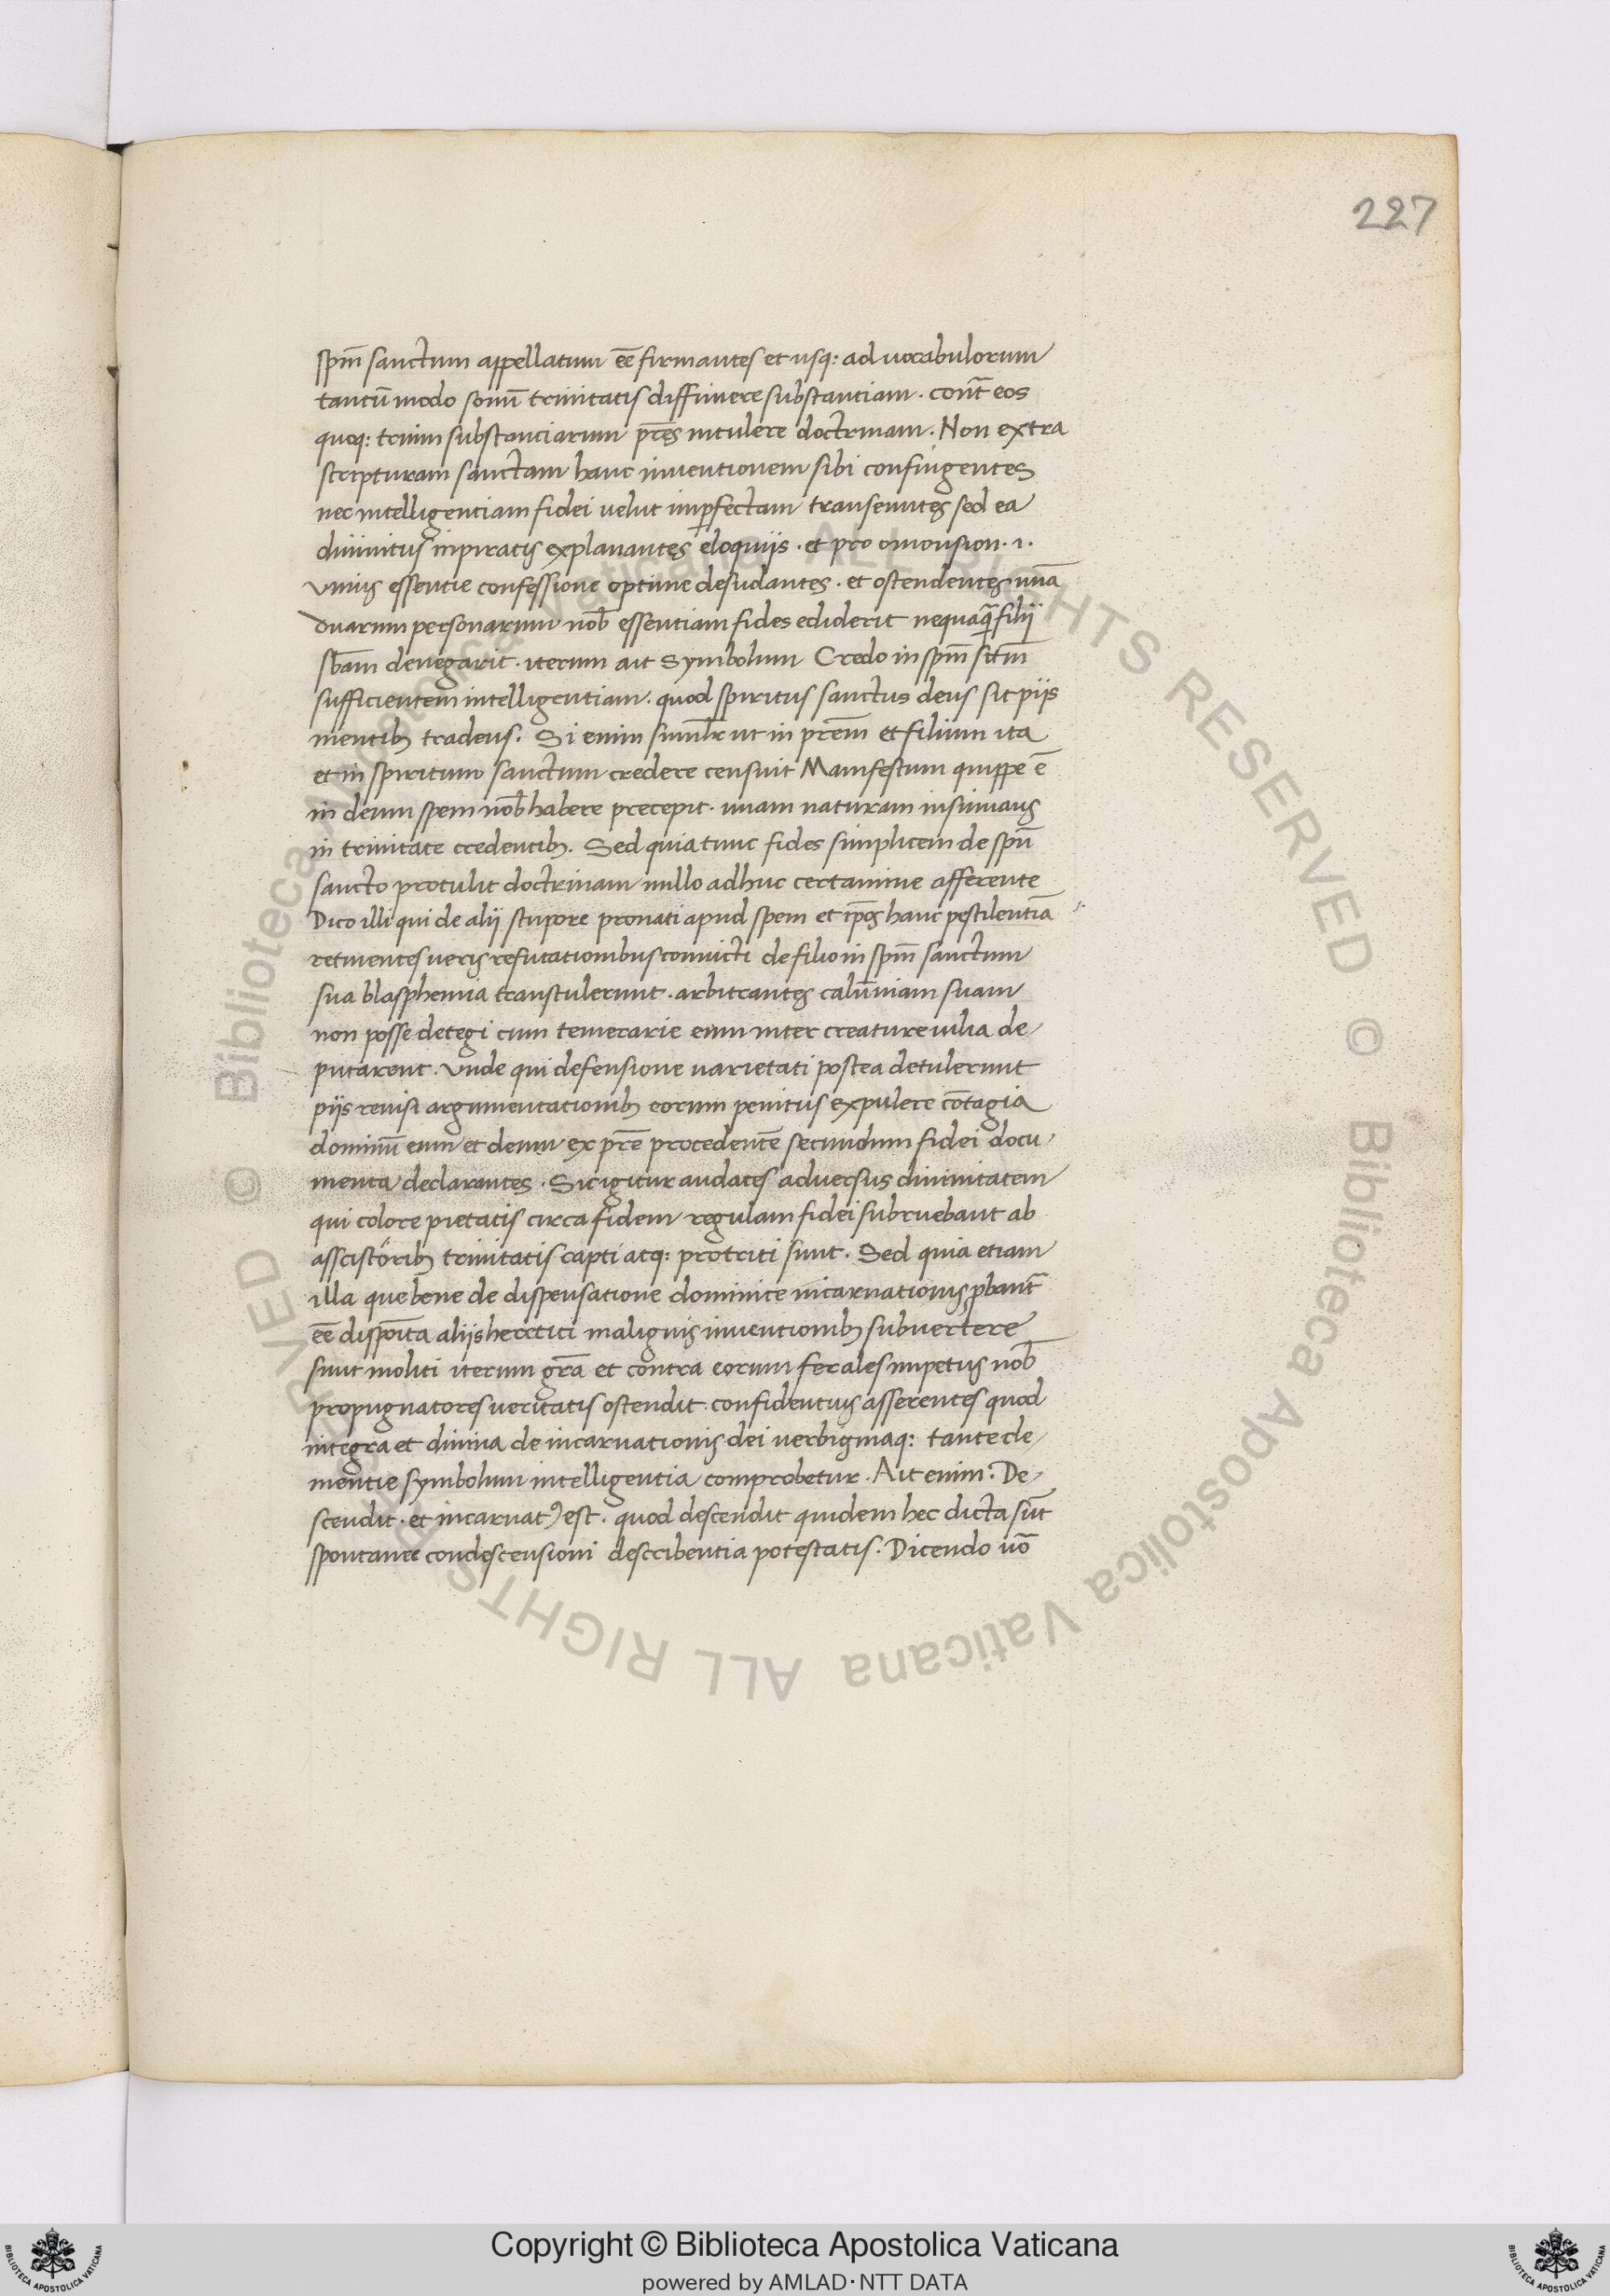 227
sp̃m sanctum appellatum eē firmantes et usq: ad vocabulorum
tantū modo sonū trinitatis diffinire substantiam. cont̃ eos
quoq: trium substanciarum pr̃es intulere doctrinam. Non extra
scripturam sanctam hanc inventionem sibi confingentes
nec intelligentiam fidei velut imꝑfectam transeuntes sed ea
divinitus inpiratis explanantes eloquiis. et pro omousion. i.
Unius essentie confessione optime desudantes. et ostendentes unā
duarum personarum nob̃ essentiam fides ediderit nequaq̄ filii
sb̃am denegarit. iterum ait Symbolum Credo in sp̃m sc̃tm̃
sufficientem intelligentiam. quod spiritus sanctus deus sit piis
mentib; tradens. Si enim simul̃r ut in pr̃em et filium ita
et in spiritum sanctum credere censuit Manifestum quippe ē
in deum spem nob̃ habere precepit. unam naturam insinuans
in trinitate credentib;. Sed quia tunc fides simplicem de sp̃u
sancto protulit doctrinam nullo adhuc certamine afferente
Dico illi qui de alii stupore pronati apud spem et ip̃os hanc pestilentiā
retinentes veris refutationibus convicti de filio in sp̃m sanctum
sua blasphemia transtulerunt. arbitrantes calūniam suam
non posse detegi cum temerarie eum inter creature vilia de
putarent. Unde qui defensione varietati postea detulerunt
piis revisi argumentationib; eorum penitus expulere cōtagia
dominū eum et deum ex pr̃e procedentē secundum fidei docu
menta declarantes. Sic igitur audaces adversus divinitatem
qui colore pietatis circa fidem regulam fidei subruebant ab
assistorib; trinitatis capti atq: protriti sunt. Sed quia etiam
illa que bene de dispensatione dominice incarnationis ꝓbant̃
eē disposita aliis heretici malignis inventionib; subvertere
sunt moliti iterum gr̃a et contra eorum ferales impetus nob̃
propugnatores veritatis ostendit confidentius asserentes quod
integra et divina de incarnationis dei verbi gmaq: tante cle
mentie symbolum intelligentia comprobetur. Ait enim: De
scendit. et incarnatꝰ est. quod descendit quidem hec dicta sūt
spontanee condescensioni describentia potestatis. Dicendo v̄o
Copyright © Biblioteca Apostolica Vaticana
powered by AMLAD·NTT DATA
© Biblioteca Apostolica Vaticana ALL RIGHTS RESERVED © Biblioteca Apostolica Vaticana ALL RIGHTS RESERVED
BIBLIOTECA APOSTOLICA VATICANA
BIBLIOTECA APOSTOLICA VATICANA